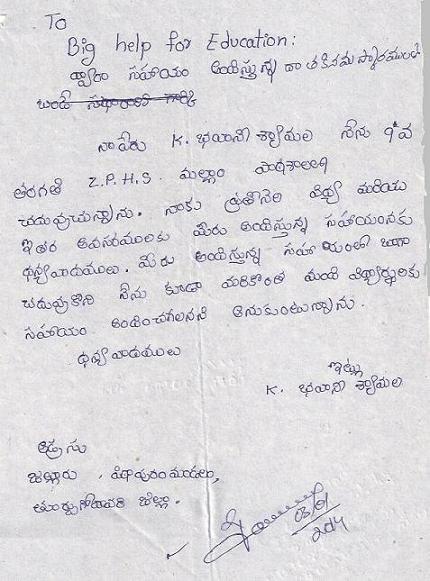 To
Big help for Education:
ద్వారా సహాయం అందిస్తున్న దాతకి నమస్కారములు
నా పేరు K. భవాని శ్యామల నేను 9వ
తరగతి Z.P.H.S. మల్లాం పాఠశాలలో
చదువుచున్నాను. నాకు ప్రతినెల విద్య మరియు
ఇతర అవసరములకు మీరు అందిస్తున్న సహాయంనకు
ధన్యవాదములు. మీరు అందిస్తున్న సహాయంతో బాగా
చదువుకొని నేను కూడా మరికొంత మంది విద్యార్థులకు
సహాయం అందించగలనని అనుకుంటున్నాను.
ధన్యవాదములు
ఇట్లు
K. భవాని శ్యామల
అడ్రసు
జల్లూరు, పిఠాపురం మండలం,
తూర్పుగోదావరి జిల్లా.
03/01
2014